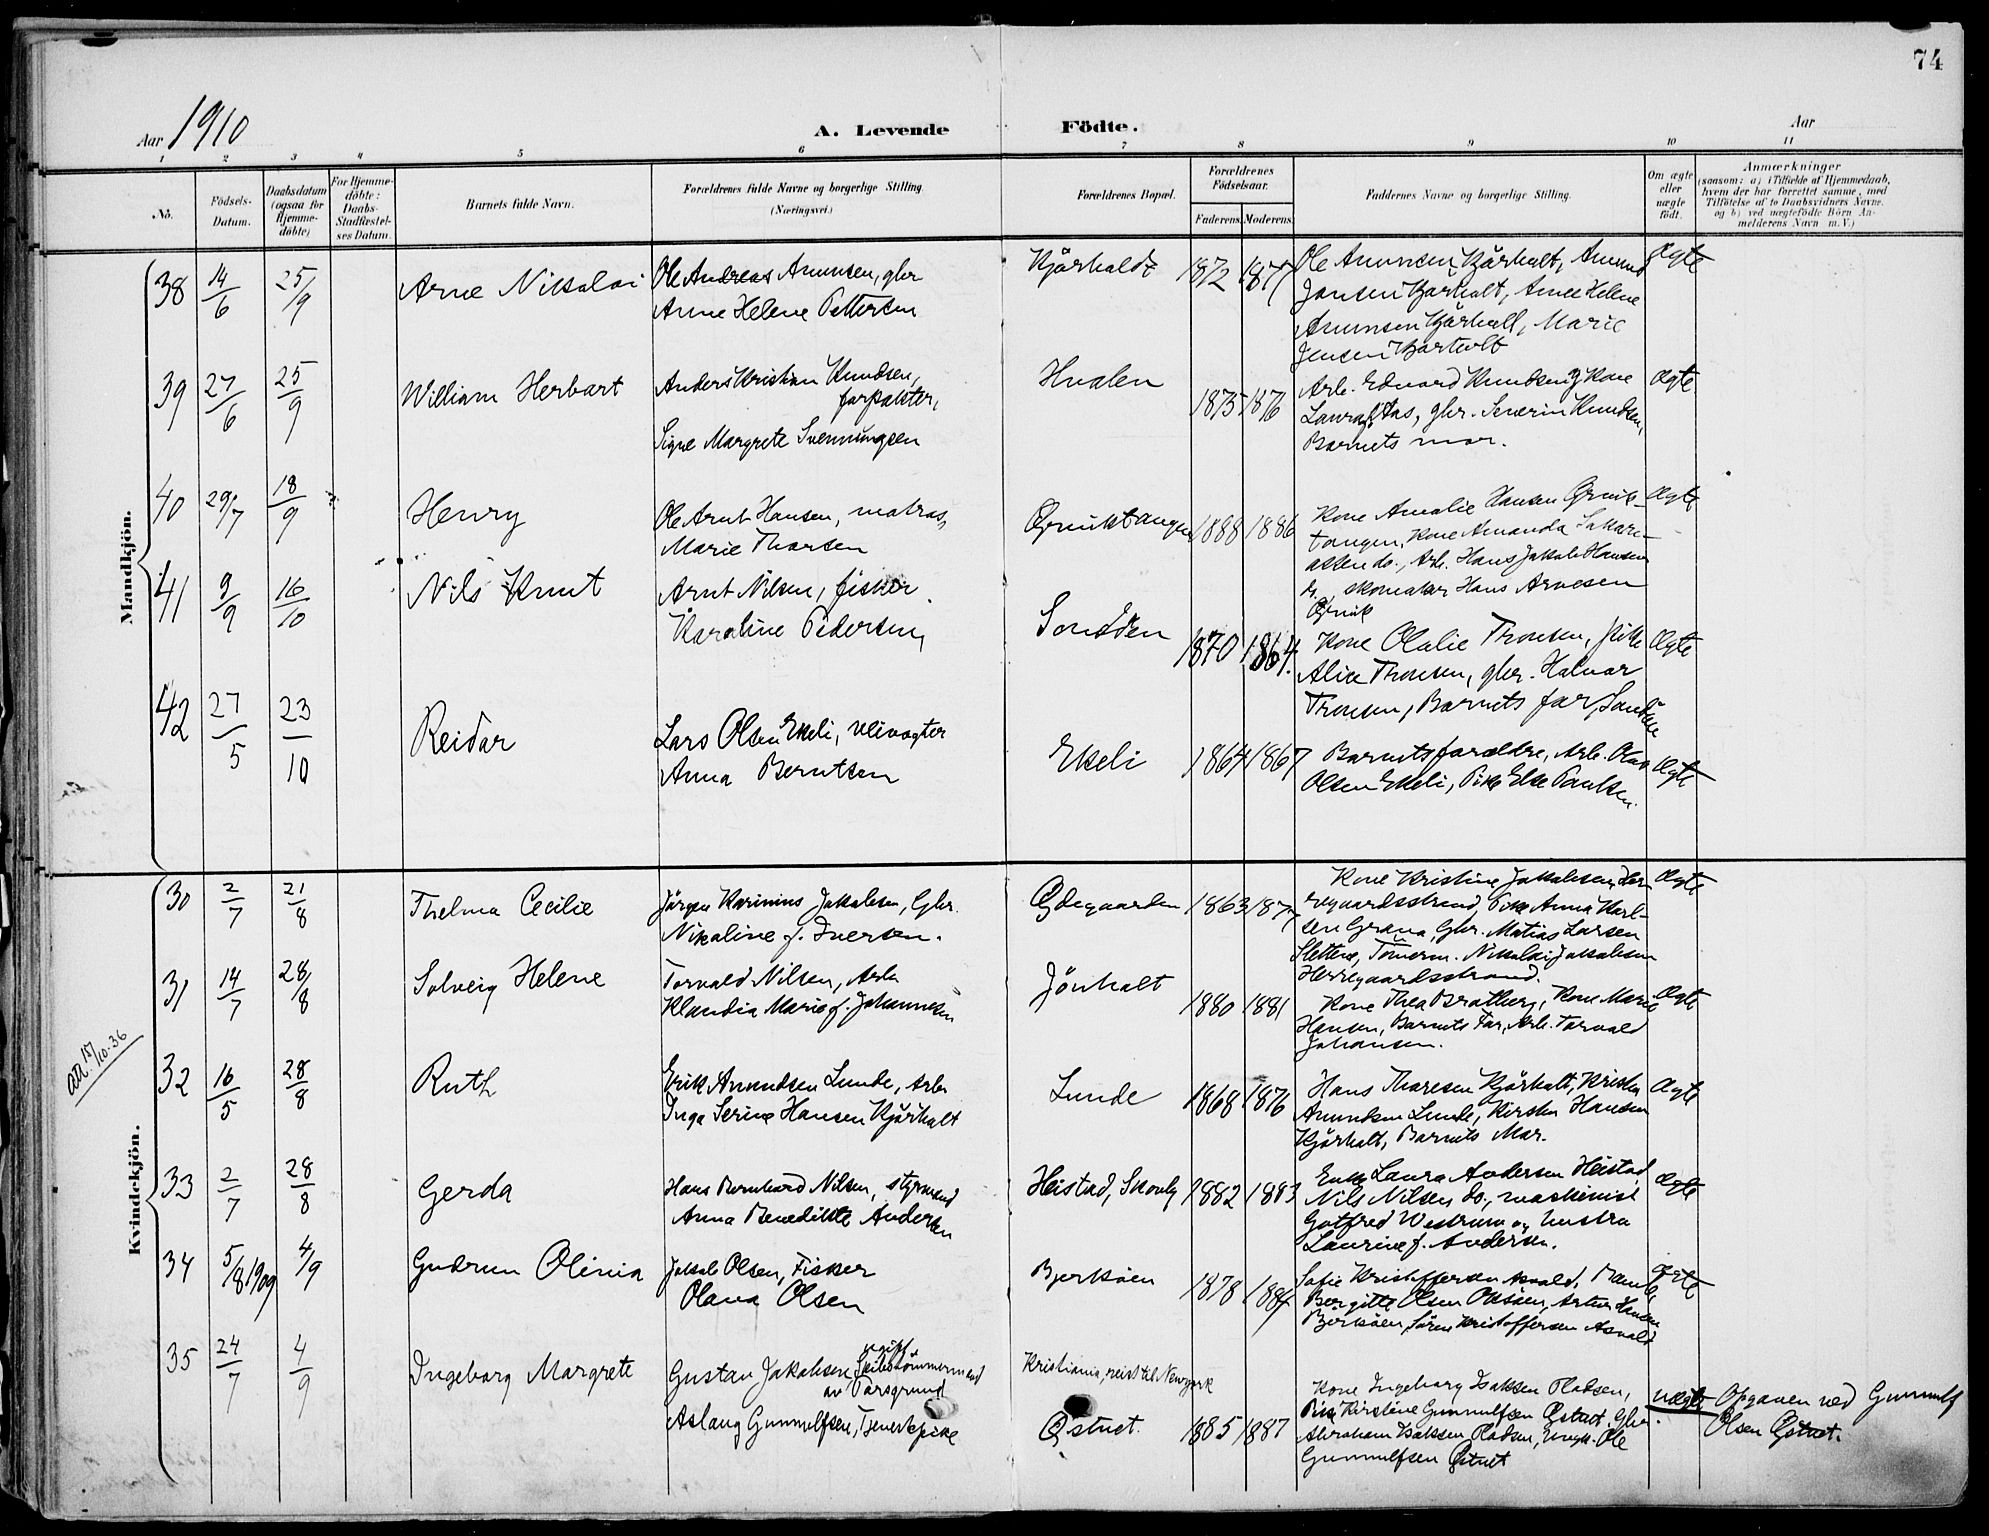 74
Aar 1910
A. Levende Födte.
Aar
1 2 3 4 5 6 7 8 9 10 11
No.
Födsels-Datum.
Daabsdatum (ogsaa for Hjemme-döbte)
For Hjemme-döbte: Daabs-Stadfæstel-ses Datum.
Barnets fulde Navn.
Forældrenes fulde Navne og borgerlige Stilling. (Næringsvei.)
Forældrenes Bopæl.
Forældrenes Födselsaar.
Faderens Moderens.
Faddernes Navne og borgerlige Stilling.
Om ægte eller uægte födt.
Anmærkninger
(saasom: a) i Tilfælde af Hjemmedaab,
hvem der har forrettet samme, med
Tilföielse af to Daabsvidners Navne.
og b) ved uægtefödte Börn An-
melderens Navn m. V.)
Mandkjön.
38 14/6 25/9 Arne Nikolai
Ole Andreas Amunsen, gbr
Anne Helene Pettersen
Kjørholdt 1872 1877
Ole Amunsen Kjørholt, Amund
Jensen Kjørholt, Anne Helene
Amunsen Kjørholt, Marie
Jensen Kjørholt
Ægte
39 27/6 25/9 William Herbart
Anders Kristian Knudsen,
forpakter,
Signe Margrete Svennungsen
Hvalen 1875 1876
Arb. Edvard Knudsen og Kone
Laura, Aas, gbr. Severin Knudsen,
Barnets mor.
Ægte
40 29/7 18/9 Henry
Ole Arnt Hansen, matros,
Marie Thorsen
Ørviktangen 1888 1886
Kone Amalie Hansen Ørvik-
tangen, Kone Amanda Sakari-
assen do., Arb. Hans Jakob Hansen
do., skomaker Hans Arnesen
Ørvik
Ægte
41 9/9 16/10 Nils Knut
Arnt Nilsen, fisker
Karoline Pedersen,
Sondøen 1870 1864.
Kone Olalie Tronsen, pike
Alice Tronsen, gbr. Halvor
Tronsen, Barnets far, Sandøen
Ægte
42 27/5 23/10 Reidar
Lars Olsen Ekeli, veivogter
Anna Berntsen
Ekeli 1864 1867
Barnets forældre, Arb. Olav
Olsen Ekeli, Pike Else Paulsen.
Ægte
Kvindekjön.
30 2/7 21/8 Thelma Cecilie
Jörgen Karinius Jakobsen, Gbr.
Nikoline f. Iversen.
Ødegaarden 1863 1877
Kone Kristine Jakobsen Her-
regaardsstrand, Pike Anna Karl-
sen Grava, Gbr. Matias Larsen
Slettene, Tömerm. Nikolai Jakobsen
Herregaardsstrand.
Ægte
31 14/7 28/8 Solveig Helene
Torvald Nilsen, Arb.
Klaudia Marie f. Johannesen
Jönholt 1880 1881
Kone Thea Bratberg, Kone Marie
Hansen, Barnets Far, Arb. Torvald
Johansen.
Ægte
att. 15/10-36
32 16/5 28/8 Ruth
Erik Amundsen Lunde, Arb.
Inga Serine Hansen Kjørholt
Lunde 1868 1876
Hans Thoresen Kjørholt, Kirsten
Amundsen Lunde, Kirsten Hansen
Kjørholt, Barnets Mor.
Ægte
33 2/7 28/8 Gerda
Hans Bernhard Nilsen, styrmand
Anna Benedikte Andersen
Heistad, Skovly 1882 1883
Enke Laura Andersen Heistad,
Nils Nilsen do., maskinist
Gotfred Westrum og hustru
Laurine f. Andersen.
Ægte
34 5/8 1909 4/9 Gudrun Olinia
Jakob Olsen, Fisker
Olava Olsen
Bjerköen 1878 1884
Sofie Kristoffersen Asvald, Bamle
Bergitte Olsen Oksöen, Artur Hansen
Bjerköen, Sören Kristoffersen Asvald
Ægte
35 24/7 4/9 Ingeborg Margrete
Gustav Jakobsen, ugift Skibstömmermand
av Porsgrund
Aslaug Gunnulfsen, Tjenestepike
Kristiania, reist til Newyork
Østvet. 1885 1887
Kone Ingeborg Isaksen Pladsen,
Pike Kirstine Gunnulfsen Østvet, Gbr.
Abraham Isaksen Pladsen, Ungk. Ole
Gunnulfsen Østvet
uægte
Opgaven ved Gunnulf
Olsen Østvet.